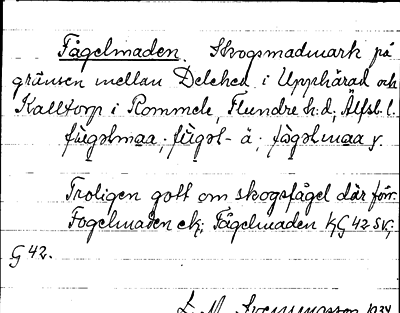 Fågelmaden. Skogsmadmark på
gränsen mellan Delehed i Upphärad och
Kalltorp i Rommele, Flundre h:d, Älfsb. l.
fùgəlmaa; fùgəl- ä; fàgəlmaa y.
Troligen gott om skogsfågel där förr.
Fogelmaden ek; Fågelmaden k, G 42 SV;
G 42.
1934